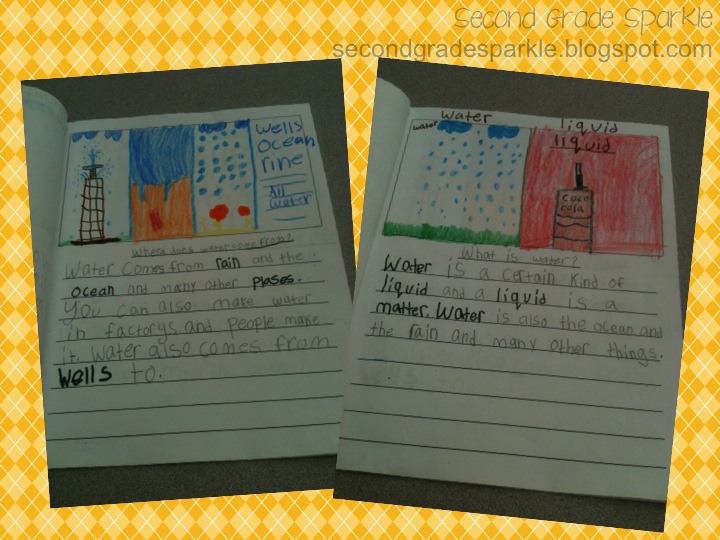 Second Grade Sparkle
secondgradesparkle.blogspot.com
Wells
Ocean
rine
All
Water
Where does water come from?
Water comes from rain and the
ocean and many other plases.
You can also make water
in factorys and people make
it. Water also comes from
wells to.
water
water
liquid
liquid
coco
cola
What is water?
Water is a certain kind of
liquid and a liquid is a
matter. Water is also the ocean and
the rain and many other things.